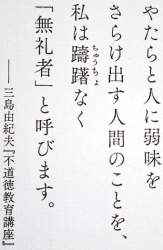 やたらと人に弱味を
さらけ出す人間のことを、
私は躊躇なく
ちゅうちょ
「無礼者」と呼びます。
――三島由紀夫『不道徳教育講座』